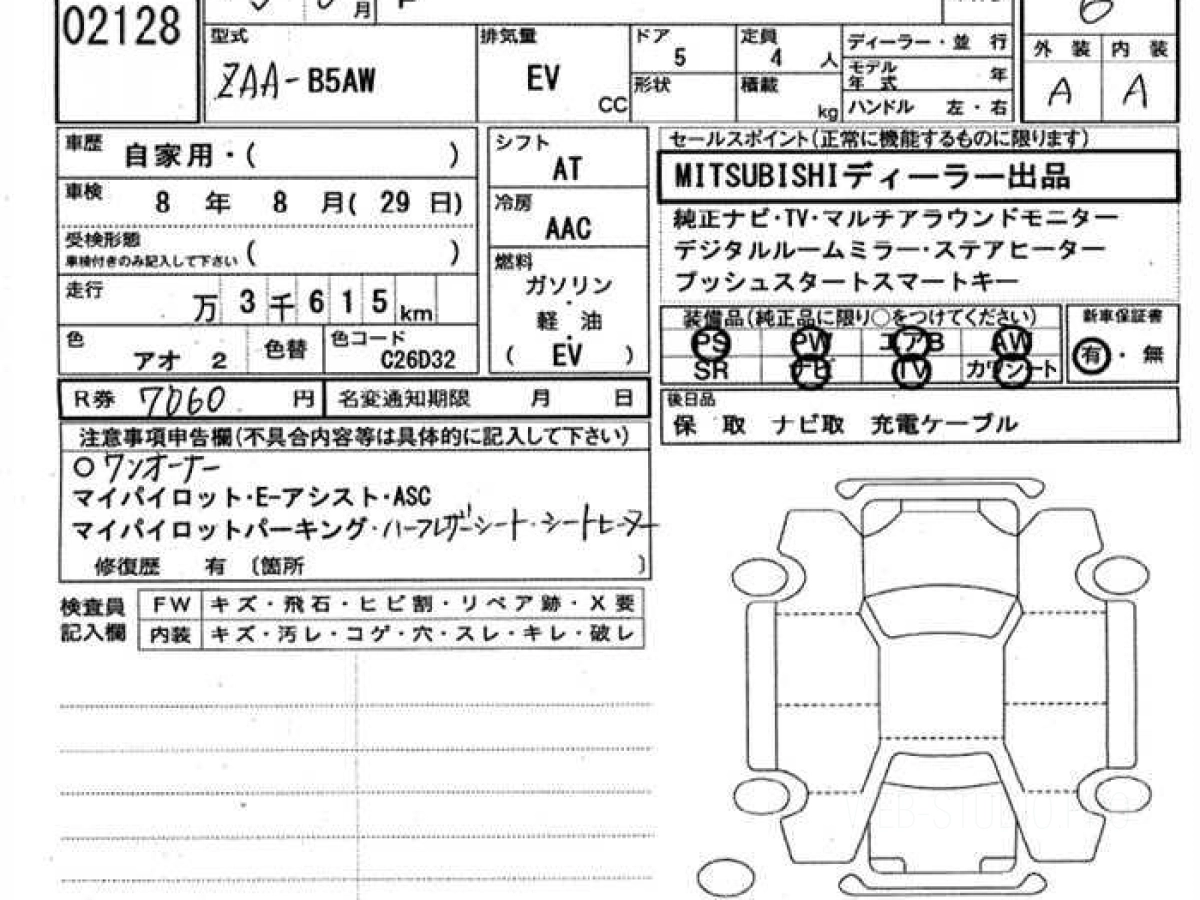 02128
月
型式
ZAA-B5AW
排気量
EV
CC
ドア
5
形状
定員
4 人
積載
kg
ディーラー・並 行
モデル年式 年
ハンドル 左・右
6
外 装 内 装
A A
車歴
自家用・( )
車検
8 年 8 月( 29 日)
受検形態
車検付きのみ記入して下さい ( )
走行
万 3 千 6 1 5 km
色
アオ 2
色替
色コード
C26D32
シフト
AT
冷房
AAC
燃料
ガソリン
・
軽 油
・
( EV )
セールスポイント(正常に機能するものに限ります)
MITSUBISHIディーラー出品
純正ナビ・TV・マルチアラウンドモニター
デジタルルームミラー・ステアヒーター
プッシュスタートスマートキー
装備品(純正品に限り○をつけてください)
PS PW エアB AW
SR ナビ TV カワシート
新車保証書
有・無
R券 7060 円
名変通知期限 月 日
後日品
保 取 ナビ取 充電ケーブル
注意事項申告欄(不具合内容等は具体的に記入して下さい)
○ワンオーナー
マイパイロット・E-アシスト・ASC
マイパイロットパーキング・ハーフレザーシート・シートヒーター
修復歴 有 〔箇所 〕
検査員
記入欄
FW キズ・飛石・ヒビ割・リペア跡・X要
内装 キズ・汚レ・コゲ・穴・スレ・キレ・破レ